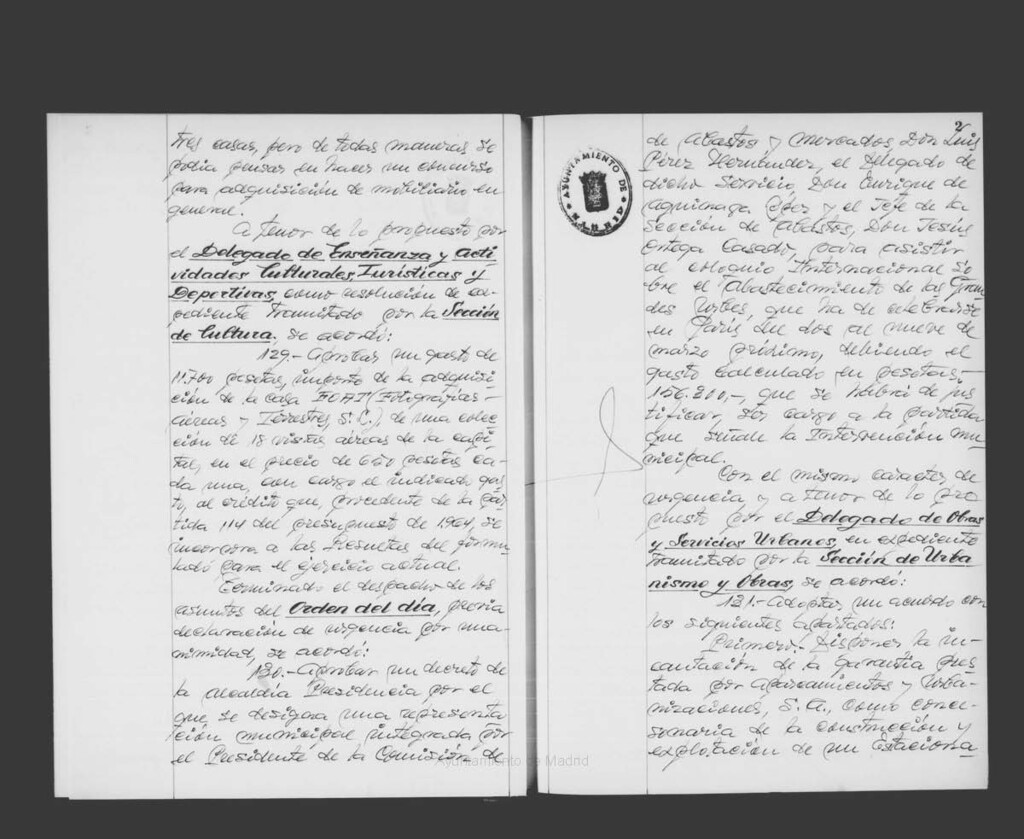 tres casas, pero de todas maneras se
podia pensar en hacer un concurso
para adquisición de mobiliario en
general.
A tenor de lo propuesto por
el Delegado de Enseñanza y Acti
vidades Culturales, Turísticas y
Deportivas, como resolución de ex-
pediente tramitado por la Sección
de Cultura, se acordó:
129.- Aprobar un gasto de
11.700 pesetas, importe de la adquisi-
ción de la casa (Fotografías
Aéreas y Terrestres, S.L.), de una colec
ción de 18 vistas aéreas de la capi
tal, en el precio de 650 pesetas ca-
da una, con cargo el indicado gas
to, al crédito que, procedente de la par
tida 114 del presupuesto de 1964, se
incorpora a las Resultas del formu
lado para el ejercicio actual.
Terminado el despacho de los
asuntos del Orden del día, previa
declaración de urgencia por una-
nimidad, se acordó:
130.- Aprobar un decreto de
la Alcaldía Presidencia por el
que se designa una representa
ción municipal integrada por
el Presidente de la Comisión de
2
AYUNTAMIENTO DE MADRID
de Abastos y Mercados, Don Luis
Pérez Hernández, el Delegado de
dicho Servicio, Don Enrique de
Aguinaga López y el Jefe de la
Sección de Abastos, Don Jesús
Ortega Casado, para asistir
al coloquio Internacional so
bre el Abastecimiento de las Gran
des Urbes, que ha de celebrarse
en París del dos al nueve de
marzo próximo, debiendo el
gasto calculado en pesetas,-
156.200,-, que se habrá de jus
tificar, ser cargo a la partida
que señale la Intervención mu
nicipal.
Con el mismo carácter de
urgencia y a tenor de lo pro
puesto por el Delegado de Obras
y Servicios Urbanos, en expediente
tramitado por la Sección de Urba
nismo y Obras, se acordó:
131.- Adoptar un acuerdo con
los siguientes apartados:
Primero.- Disponer la in-
cautación de la garantía pres
tada por Aparcamientos y Urba-
nizaciones, S.A., como conce-
sionaria de la construcción y
explotación de un Estaciona
Ayuntamiento de Madrid